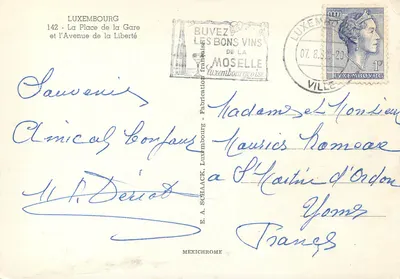 LUXEMBOURG
142 - La Place de la Gare
et l'Avenue de la Liberté
BUVEZ
LES BONS VINS
DE LA
MOSELLE
Luxembourgeoise
LUXEMBOURG
VILLE
LUXEMBOURG
Souvenirs
Amical bonjour
E. A. SCHAACK, Luxembourg - Fabrication
MEXICHROME
Madame et Monsieur
Maurice
a St Martin d'Ordon
Yonne
France